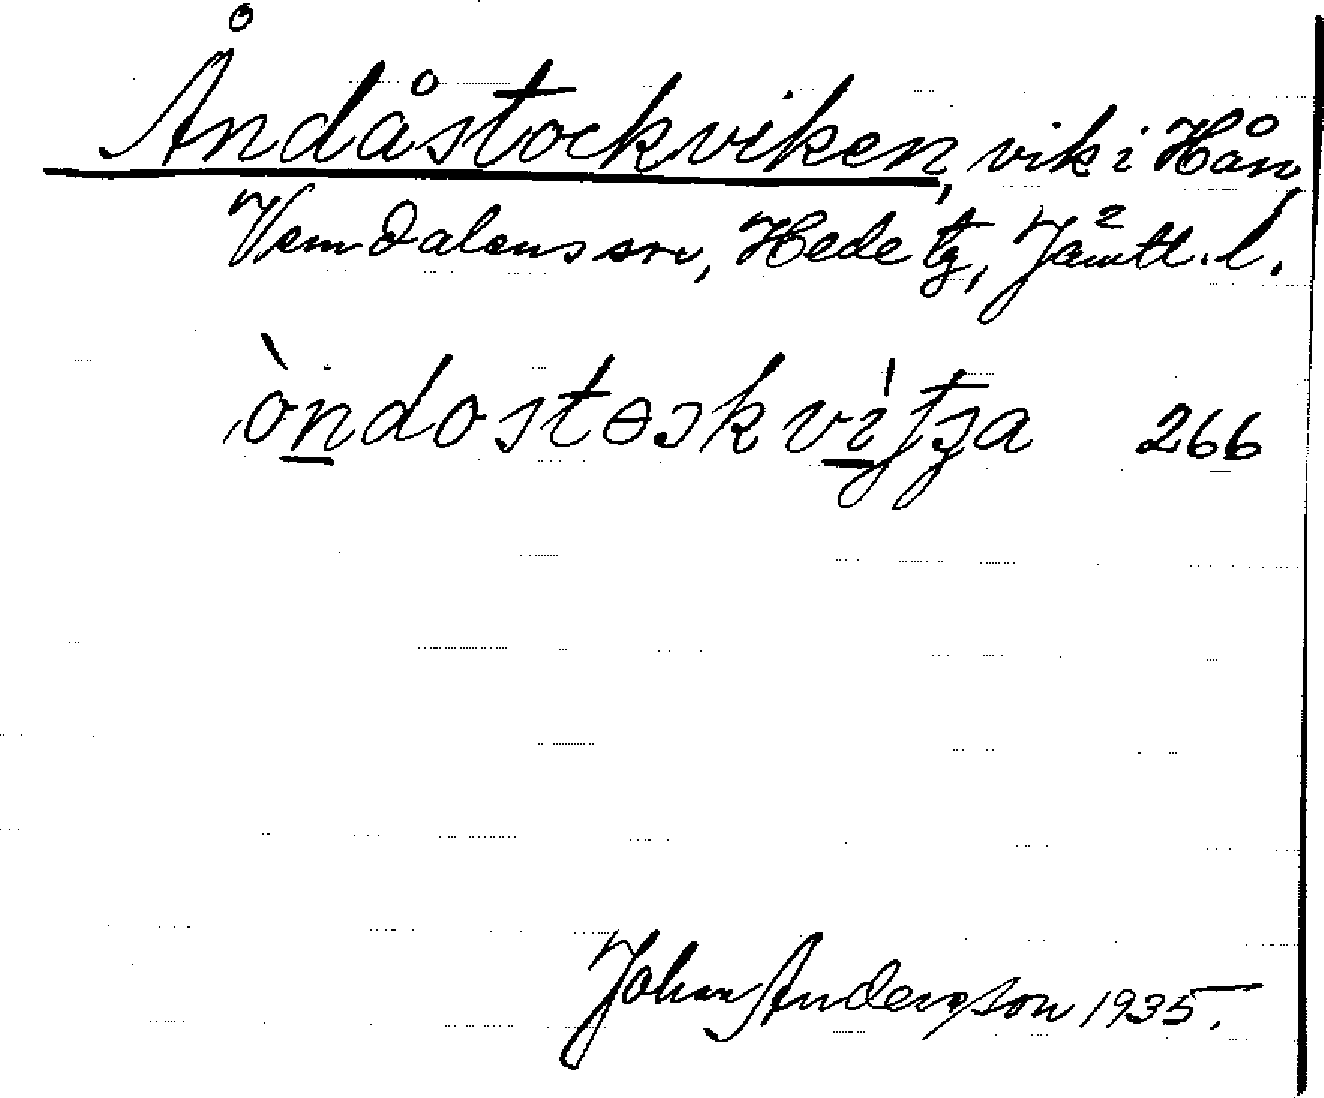 Åndåstockviken, vik i Hån,
Vemdalens sn, Hede tg, Jämtl. l.
òndosteskvìtʃa 266
Johan Anderson 1935.